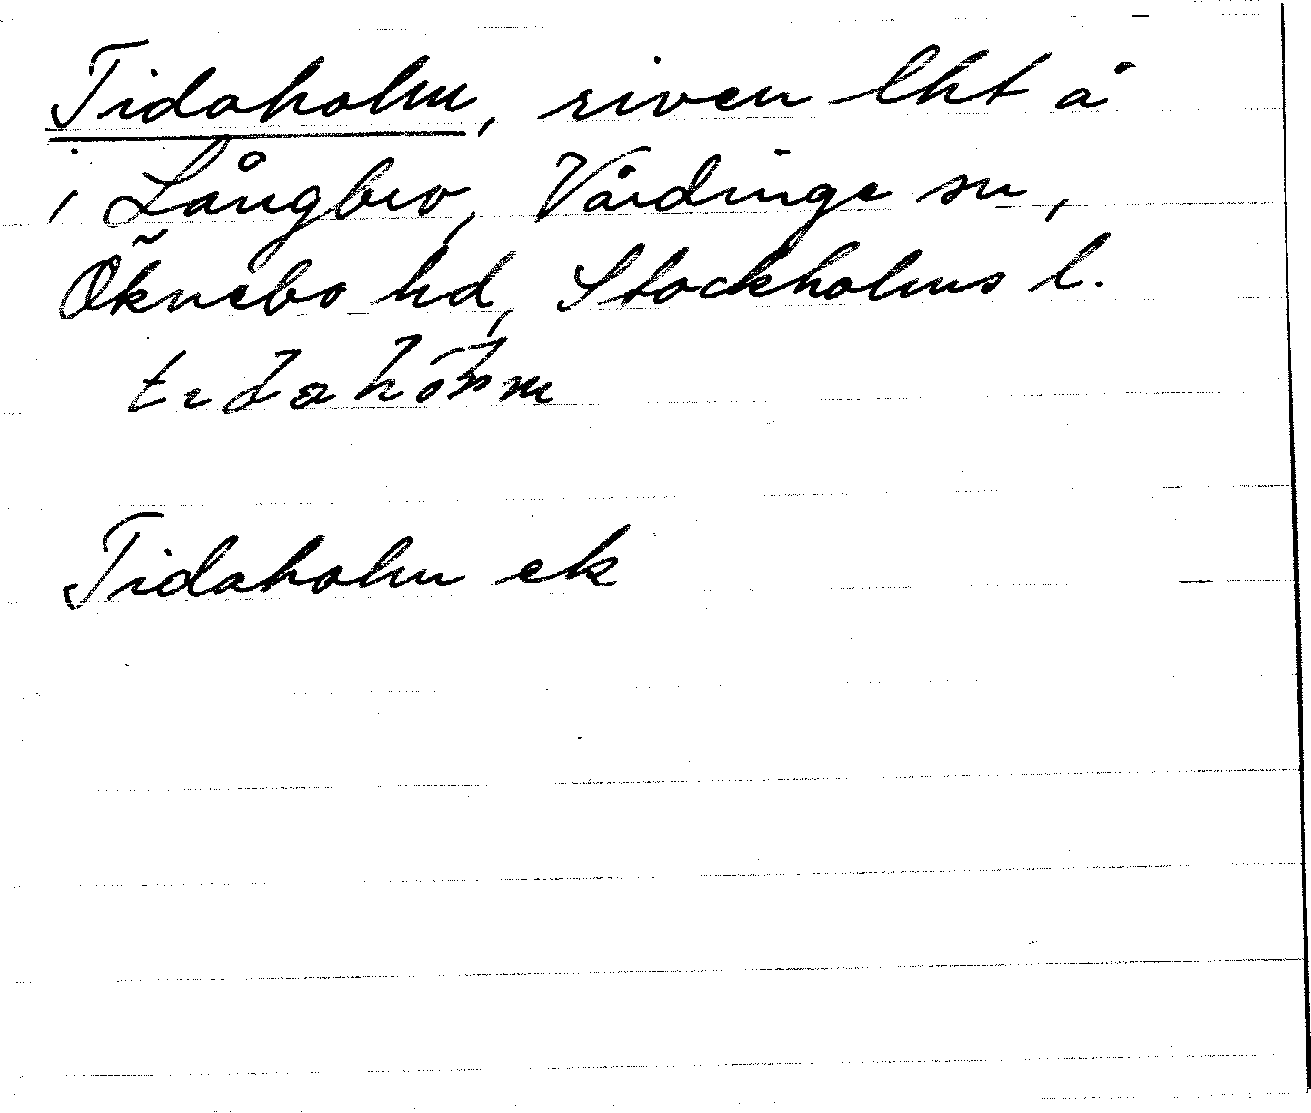 Tidaholm, riven lht å
i Långbro, Vårdinge sn,
Öknebo hd, Stockholms l.
Tidaholm ek